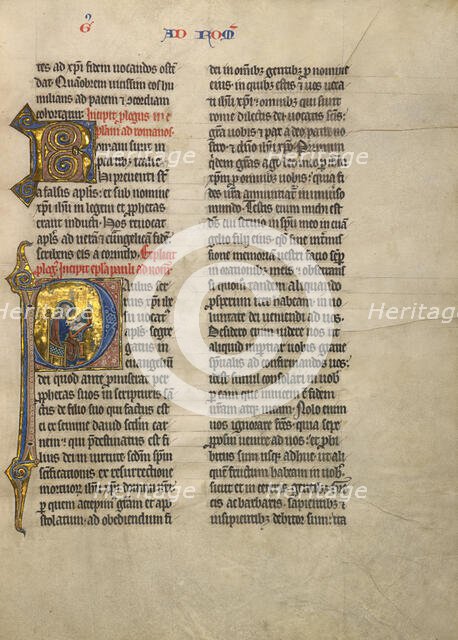 AD ROM
tes ad xpi fidem uocandos ost
dat. Quãobrem uicissim eos hu
milians ad pacem et concordiam
cohortatur. Incipit plogus in e
plam ad romanos.
Romani sunt in
ptes italie.
Hi preuenti st
a falsis aplis: et sub nomine
xpi ihu in legem et prophetas
erant inducti. Hos reuocat
apls ad ueram euangelicã fidem
scribens eis a corintho. Explicit
plog. Incipit epla pauli ad romãs
Paulus ser
uus xpi ihu
uocatus
apls segre
gatus in
euuangelium
dei quod ante pmiserat per
prophetas suos in scripturis
sctis de filio suo qui factus est
ei ex semine dauid scdm car
nem et qui p̃destinatus est fi
lius dei in uirtute scdm spm
sctificationis ex resurrectione
mortuor ihu xpi dni nri: per
quem accepim gram et apo
stolatum ad obediendum fi
dei in omibz gentibz p nomine
eius in quibz estis et uos uoca
ti ihu xpi: omnibz qui sunt
rome dilectis dei uocatis sctis:
gra uobis et pax a deo patre no
stro et dno ihu xpo. Primum
qdem gras ago deo meo p ihm
xpm p omibz uobis: quia fi
des ura annuntiat in uniuso
mundo. Testis enim michi est
ds cui seruio in spu meo in eu
angelio filii eius
memoriam uestri facio semp
in orationibz meis
si quomodo tandem aliqn
psperum iter habeam in uo
luntate dei ueniendi ad uos
Desidero enim uidere uos ut
aliquid inptiar uobis gratie
spualis ad confirmandos uos
idest simul consolari in uob
per eam que inuicem est fidem
uram atqz meam. Nolo enim
uos ignorare frs: quia sepe
pposui uenire ad uos: et phi
bitus sum usqz adhuc ut ali
quẽ fructum habeam in uob
sicut et in ceteris gentibz. grecis
ac barbaris. sapientibz et
insipientibz debitor sum: ita
Heritage